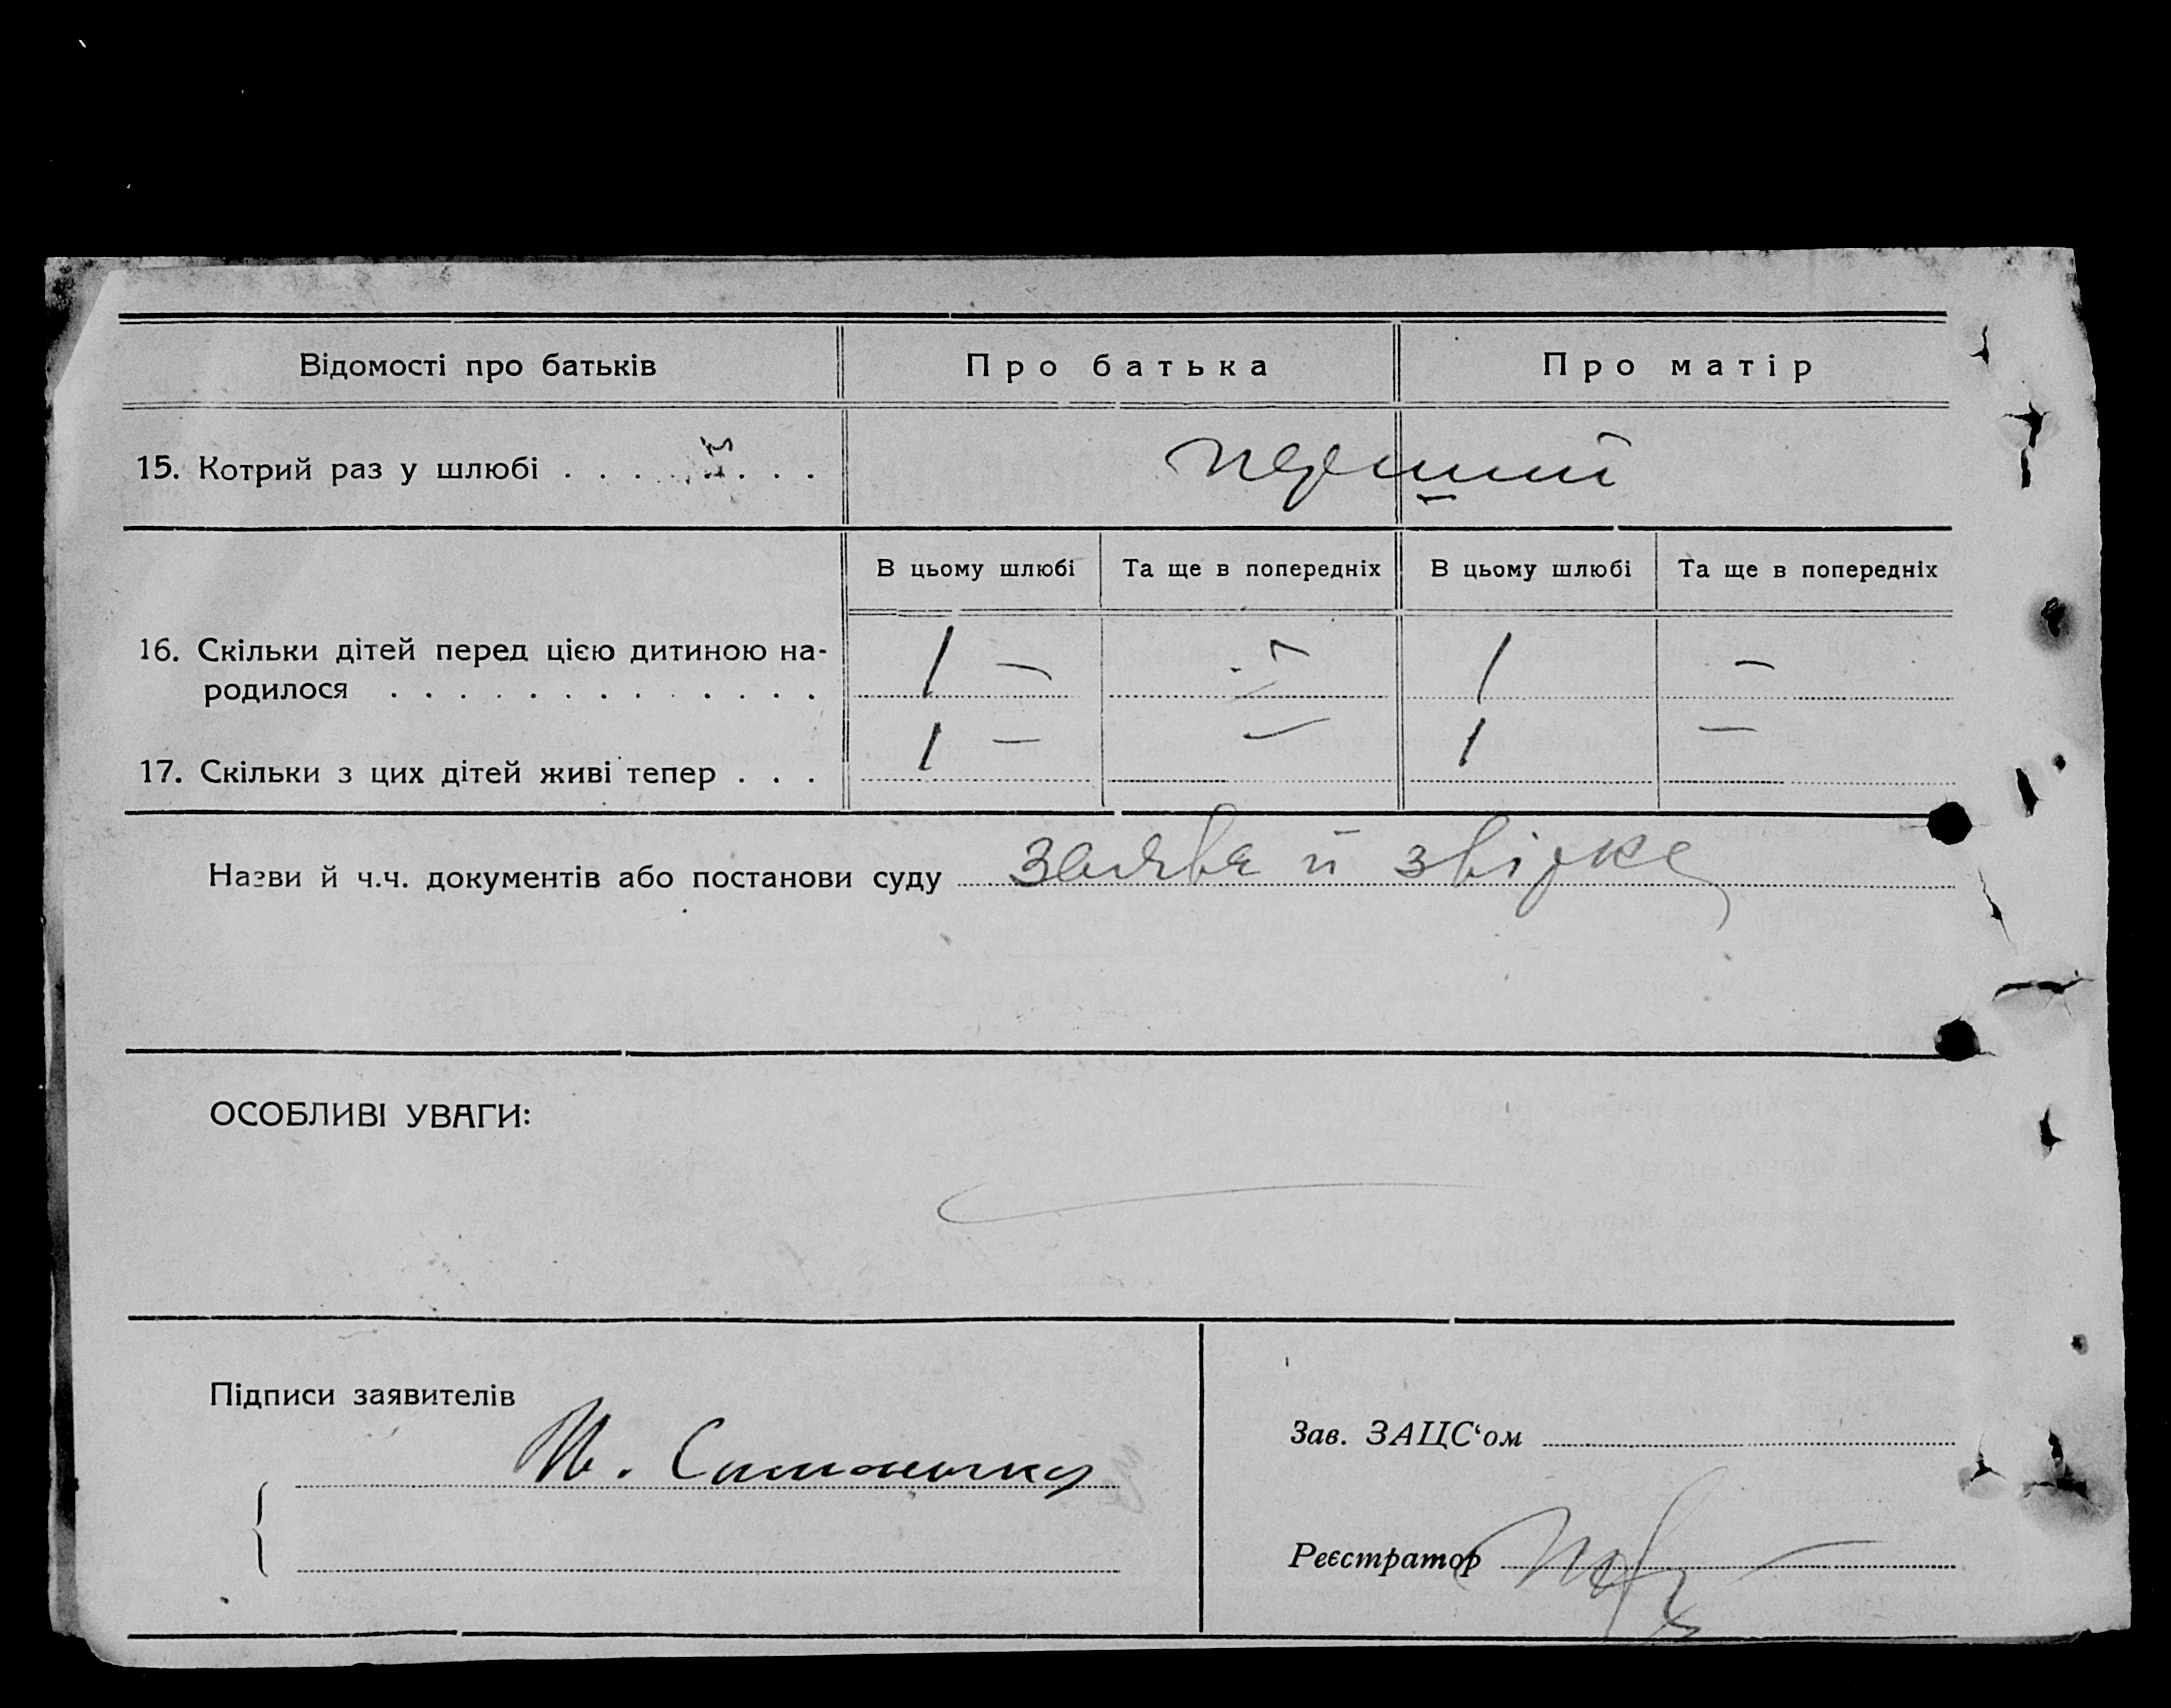 Відомості про батьків Про батька Про матір
15. Котрий раз у шлюбі . . . . . . . . перший
В цьому шлюбі Та ще в попередніх В цьому шлюбі Та ще в попередніх
16. Скільки дітей перед цією дитиною на-
родилося . . . . . . . . . . . . . 1 — — 1 —
17. Скільки з цих дітей живі тепер . . . 1 — — 1 —
Назви й ч.ч. документів або постанови суду заява й звірка
ОСОБЛИВІ УВАГИ:
Підписи заявителів
Зав. ЗАЦС‘ом
Реєстратор